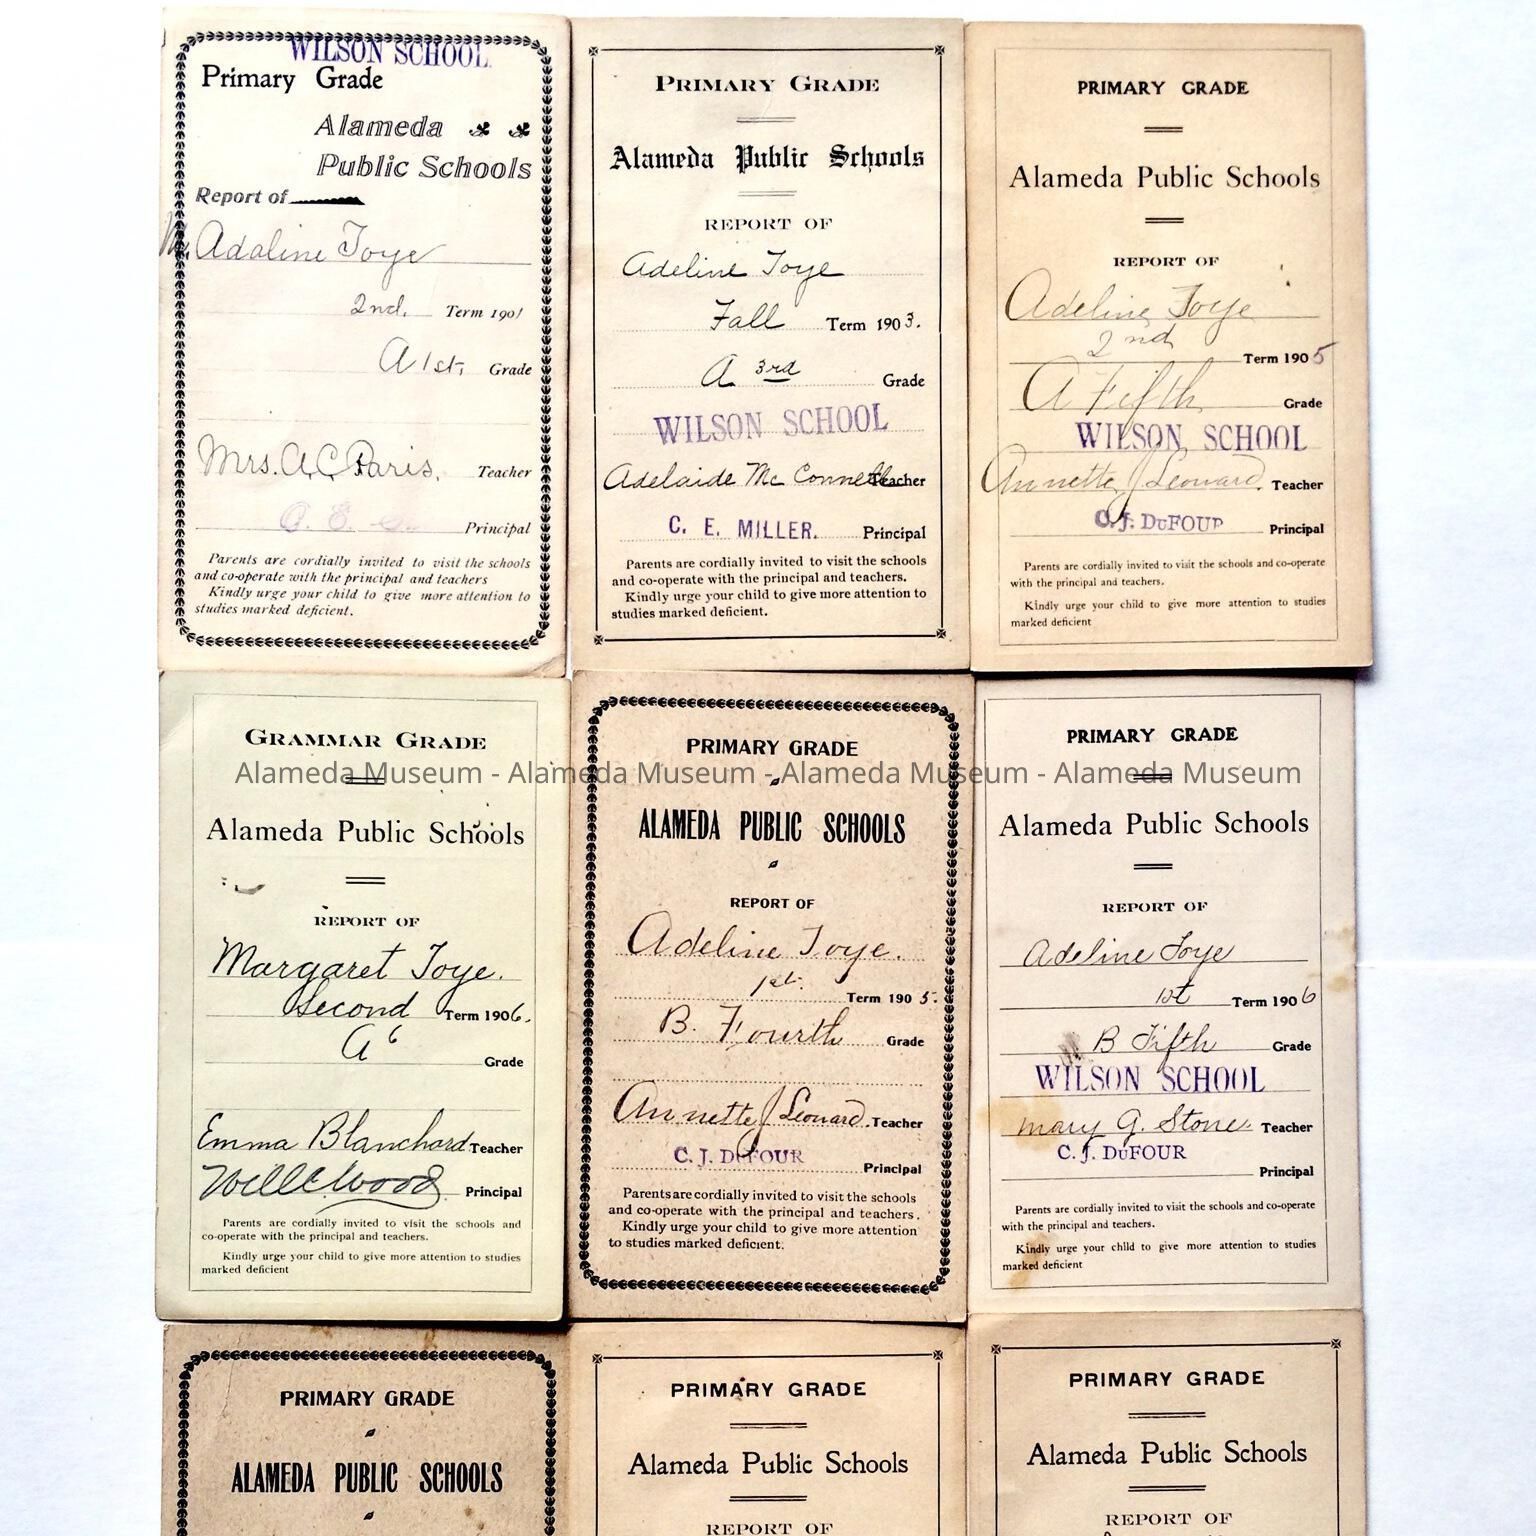 WILSON SCHOOL
Primary Grade
Alameda
Public Schools
Report of
Adaline Toye
2nd. Term 1901
A 1st. Grade
Mrs. A. C. Paris. Teacher
Principal
Parents are cordially invited to visit the schools
and co-operate with the principal and teachers
Kindly urge your child to give more attention to
studies marked deficient.
PRIMARY GRADE
Alameda Public Schools
REPORT OF
Adeline Toye
Fall Term 1903.
A 3rd Grade
WILSON SCHOOL
Adelaide McConnell Teacher
C. E. MILLER. Principal
Parents are cordially invited to visit the schools
and co-operate with the principal and teachers.
Kindly urge your child to give more attention to
studies marked deficient.
PRIMARY GRADE
Alameda Public Schools
REPORT OF
Adeline Toye
2nd Term 1905
A Fifth Grade
WILSON SCHOOL
Annette J Leonard. Teacher
C. J. DuFOUR Principal
Parents are cordially invited to visit the schools and co-operate
with the principal and teachers.
Kindly urge your child to give more attention to studies
marked deficient
GRAMMAR GRADE
Alameda Museum - Alameda Museum - Alameda Museum - Alameda Museum
Alameda Public Schools
REPORT OF
Margaret Toye.
Second Term 1906.
A6 Grade
Emma Blanchard Teacher
Will C Wood Principal
Parents are cordially invited to visit the schools and
co-operate with the principal and teachers.
Kindly urge your child to give more attention to studies
marked deficient
PRIMARY GRADE
ALAMEDA PUBLIC SCHOOLS
REPORT OF
Adeline Toye.
1st. Term 1905.
B. Fourth Grade
Annette J Leonard. Teacher
C. J. DuFOUR Principal
Parents are cordially invited to visit the schools
and co-operate with the principal and teachers.
Kindly urge your child to give more attention
to studies marked deficient.
PRIMARY GRADE
Alameda Public Schools
REPORT OF
Adeline Toye
1st Term 1906
B Fifth Grade
WILSON SCHOOL
Mary G. Stone. Teacher
C. J. DuFOUR
Principal
Parents are cordially invited to visit the schools and co-operate
with the principal and teachers.
Kindly urge your child to give more attention to studies
marked deficient
PRIMARY GRADE
ALAMEDA PUBLIC SCHOOLS
PRIMARY GRADE
Alameda Public Schools
REPORT OF
PRIMARY GRADE
Alameda Public Schools
REPORT OF